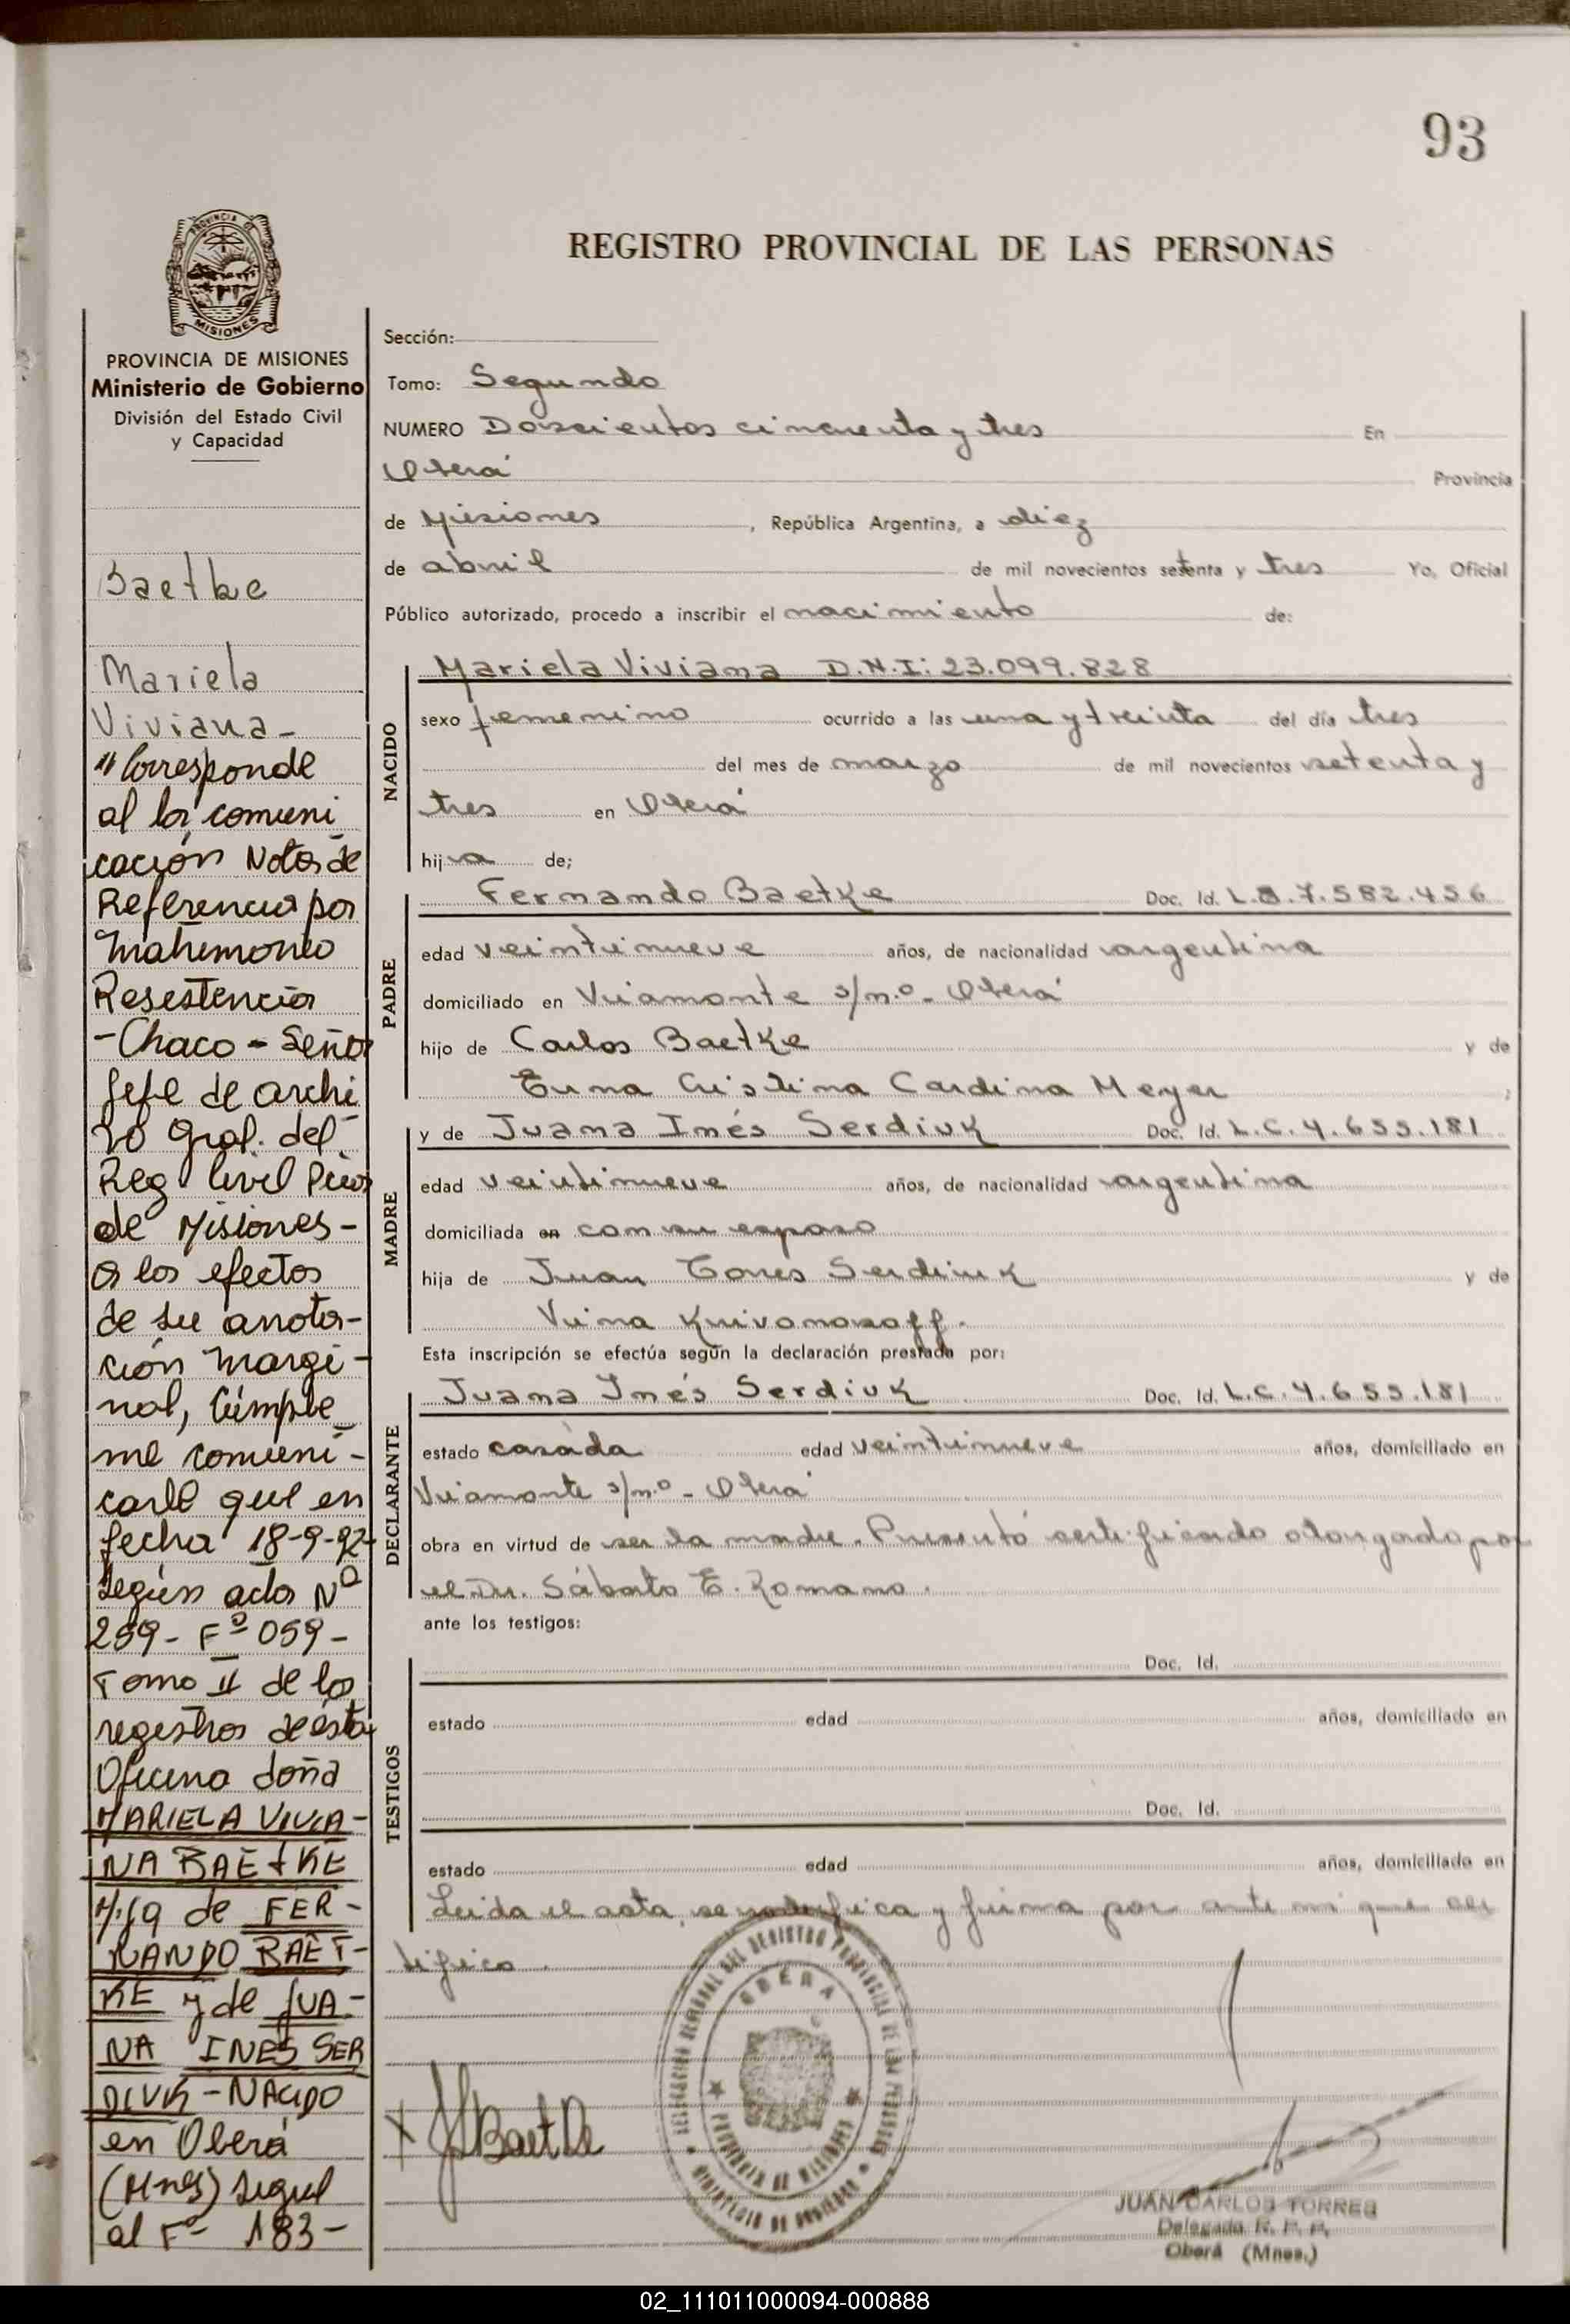 93
REGISTRO PROVINCIAL DE LAS PERSONAS
PROVINCIA
MISIONES
PROVINCIA DE MISIONES
Ministerio de Gobierno
División del Estado Civil
y Capacidad
Baetke
Mariela
Viviana-
"Corresponde
al la comuni
cación Nota de
Referencia por
Matrimonio
Resistencia
-Chaco - Señor
Jefe de archi
vo Gral. del
Reg Civil Pcia
de Misiones-
a los efectos
de su anota-
ción margi-
nal, Cúmple
me comuni-
carle que en
fecha 18-9-92
según acta Nº
259- Fº 059-
Tomo II de los
registros de ésta
Oficina doña
MARIELA VIVIA-
NA BAETKE
Hija de FER-
NANDO BAET-
KE y de JUA-
NA INES SER
DIUK - NACIDO
en Oberá
(Mnes) sigue
al Fº 183-
Sección:
Tomo: Segundo
NUMERO Doscientos cincuenta y tres En
Oberá Provincia
de Misiones, República Argentina, a diez
de abril de mil novecientos setenta y tres Yo, Oficial
Público autorizado, procedo a inscribir el nacimiento de:
NACIDO
Mariela Viviana D.N.I: 23.099.828
sexo femenino ocurrido a las una y treinta del día tres
del mes de marzo de mil novecientos setenta y
tres en Oberá
hija de;
PADRE
Fernando Baetke Doc. Id. L.E.7.582.456
edad veintinueve años, de nacionalidad argentina
domiciliado en Viamonte s/n.º- Oberá
hijo de Carlos Baetke y de
Erma Cristina Cardina Meyer ;
MADRE
y de Juana Inés Serdiuk Doc. Id. L.C.4.655.181
edad veintinueve años, de nacionalidad argentina
domiciliada en con su esposo
hija de Juan Serdiuk y de
Esta inscripción se efectúa según la declaración prestada por:
DECLARANTE
Juana Inés Serdiuk Doc. Id. L.C.4.655.181
estado casada edad veintinueve años, domiciliado en
Viamonte s/n.º- Oberá
obra en virtud de ser la madre. Presentó certificado otorgado por
el Dr. Sábato E. Romano.
ante los testigos:
TESTIGOS
Doc. Id.
estado edad años, domiciliado en
Doc. Id.
estado edad años, domiciliado en
Leida el acta, se ratifica y firma por ante mi que cer
tifico.
DELEGACION REGIONAL DEL REGISTRO PROVINCIAL DE LAS PERSONAS
OBERA
PROVINCIA DE MISIONES
MINISTERIO DE GOBIERNO
X Baetke
JUAN CARLOS TORRES
Delegado R. P. P.
Oberá (Mnes.)
02_111011000094-000888